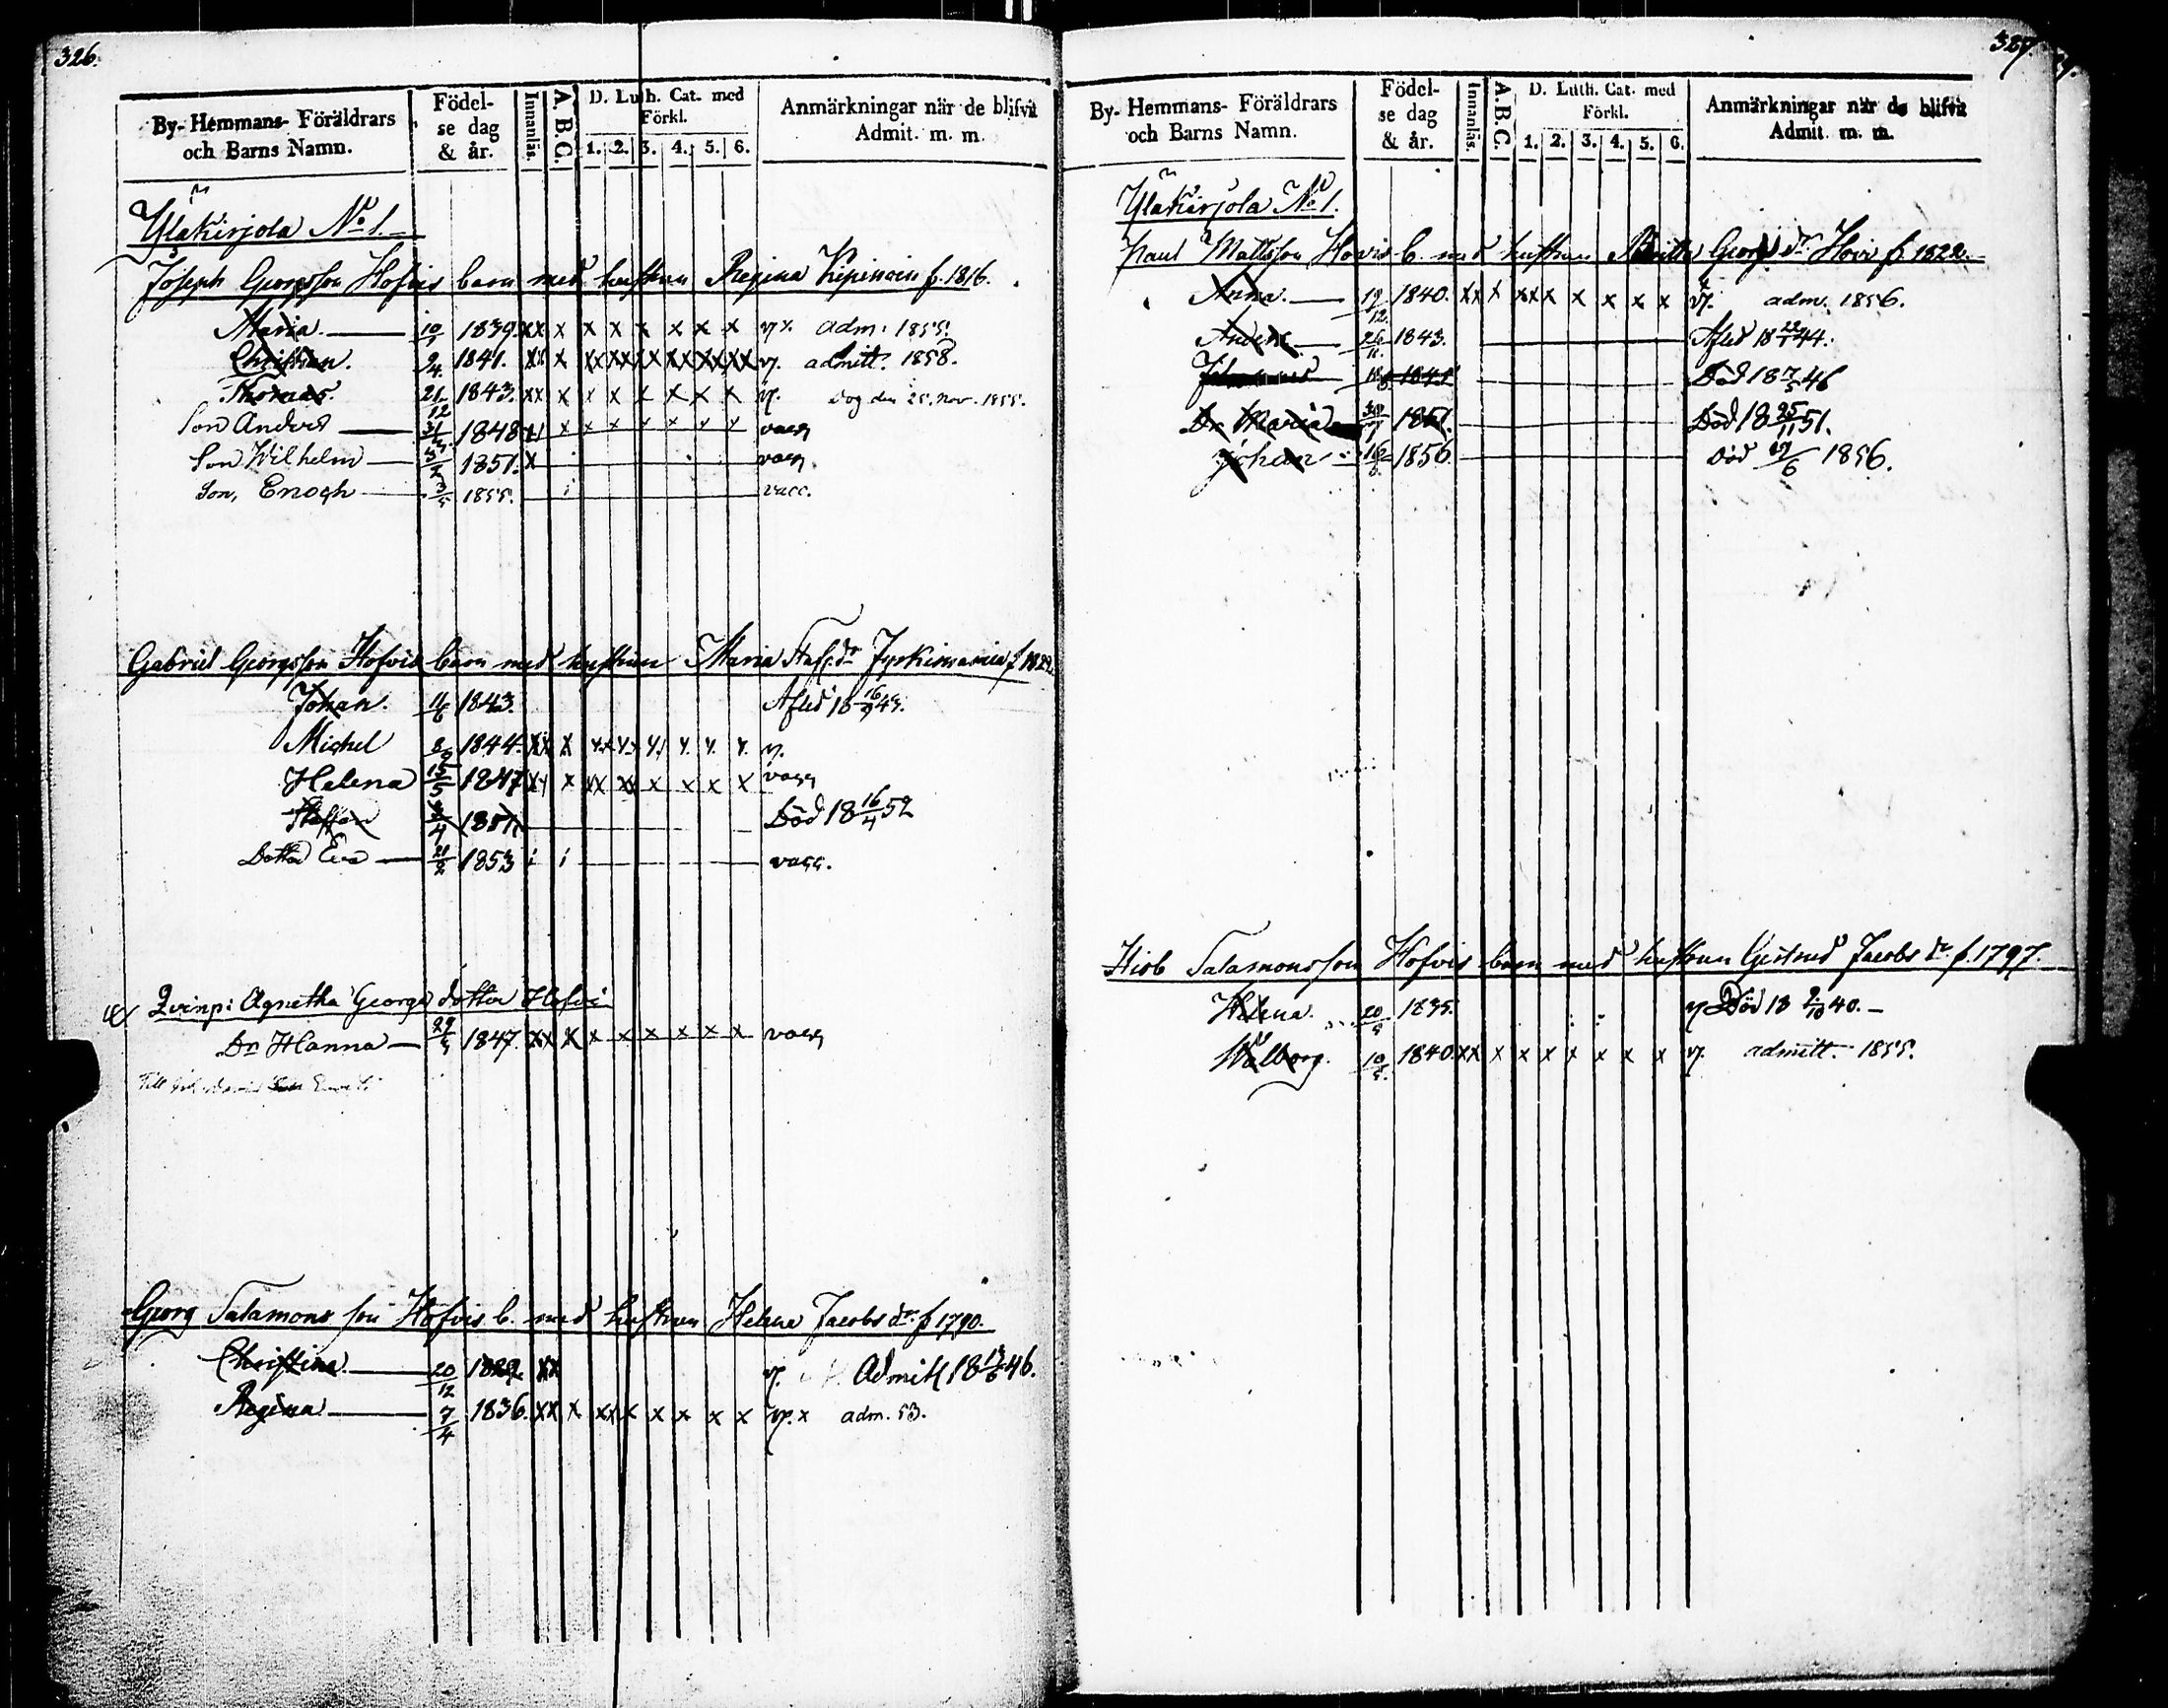 326.
By- Hemmans- Föräldrars och Barns Namn.
Födelse dag & år.
Innanläs.
A.B.C.
D. Luth. Cat. med Förkl.
1. 2. 3. 4. 5. 6.
Anmärkningar när de blifvit Admit. m. m.
Yläkirjola No 1.
Joseph Georgsson Hofvis barn med hustrun Regina f. 1816.
Maria. 10 1839. xx x x x x x x x adm. 1855.
Christian. 2/4 1841. xx x xx xx xx xx xx xx v. admitt. 1858.
Thomas. 21/12 1843. xx x x x x x x x v. Dog den 25. Nov. 1855.
Son Anders 31 1848 x x x x x x x vacc
Son Wilhelm 1851. x vacc.
Son, Enoch 1855. vacc.
Gabriel Georgsson Hofvis barn med hustrun Maria Staff. dr f. 1822
Johan. 1843. Afled 18 16/9 43.
Michel 8 1844. xx x x x x x x x v.
Helena 15/5 1847 xx x xx xx x x x x vacc
Staffan /4 1851. Död 18 16/4 52
Dotter Eva 21/2 1853 i i vacc.
Qvinp: Agnetha Georgs dotter Hofvi
Dr Hanna 29 1847. xx x x x x x x x vacc
Till
Georg Salamons son Hofvis b. med hustrun Helena Jacobs dr. f. 1790.
Christina. 20/12 1829. xx v. Admitt 18 46.
Regina 7/4 1836. xx x xx x x x x x x adm. 53.
327.
By- Hemmans- Föräldrars och Barns Namn.
Födelse dag & år.
Innanläs.
A.B.C.
D. Luth. Cat. med Förkl.
1. 2. 3. 4. 5. 6.
Anmärkningar när de blifvit Admit. m. m.
Yläkirjola No 1.
Paul Mattsson Hovis b. med hustrun Britta Georgs dr. Hovi f. 1822.
Anna. 19/12 1840. xx x xx x x x x x v. adm. 1856.
Anders. 26/11 1843. Afled 18 22/1 44.
Johannes 1845 Död 18 7/5 46
Dr Maria 1851. Död 18 25/11 51.
Johan 16 1856. Död /6 1856.
Hiob Salamonsson Hofvis barn med hustrun Gertrud Jacobs dr. f. 1797.
Helena. 20 1835. v Död 18 9/10 40.
Walborg. 10 1840. xx x x x x x x x v. admitt. 1855.